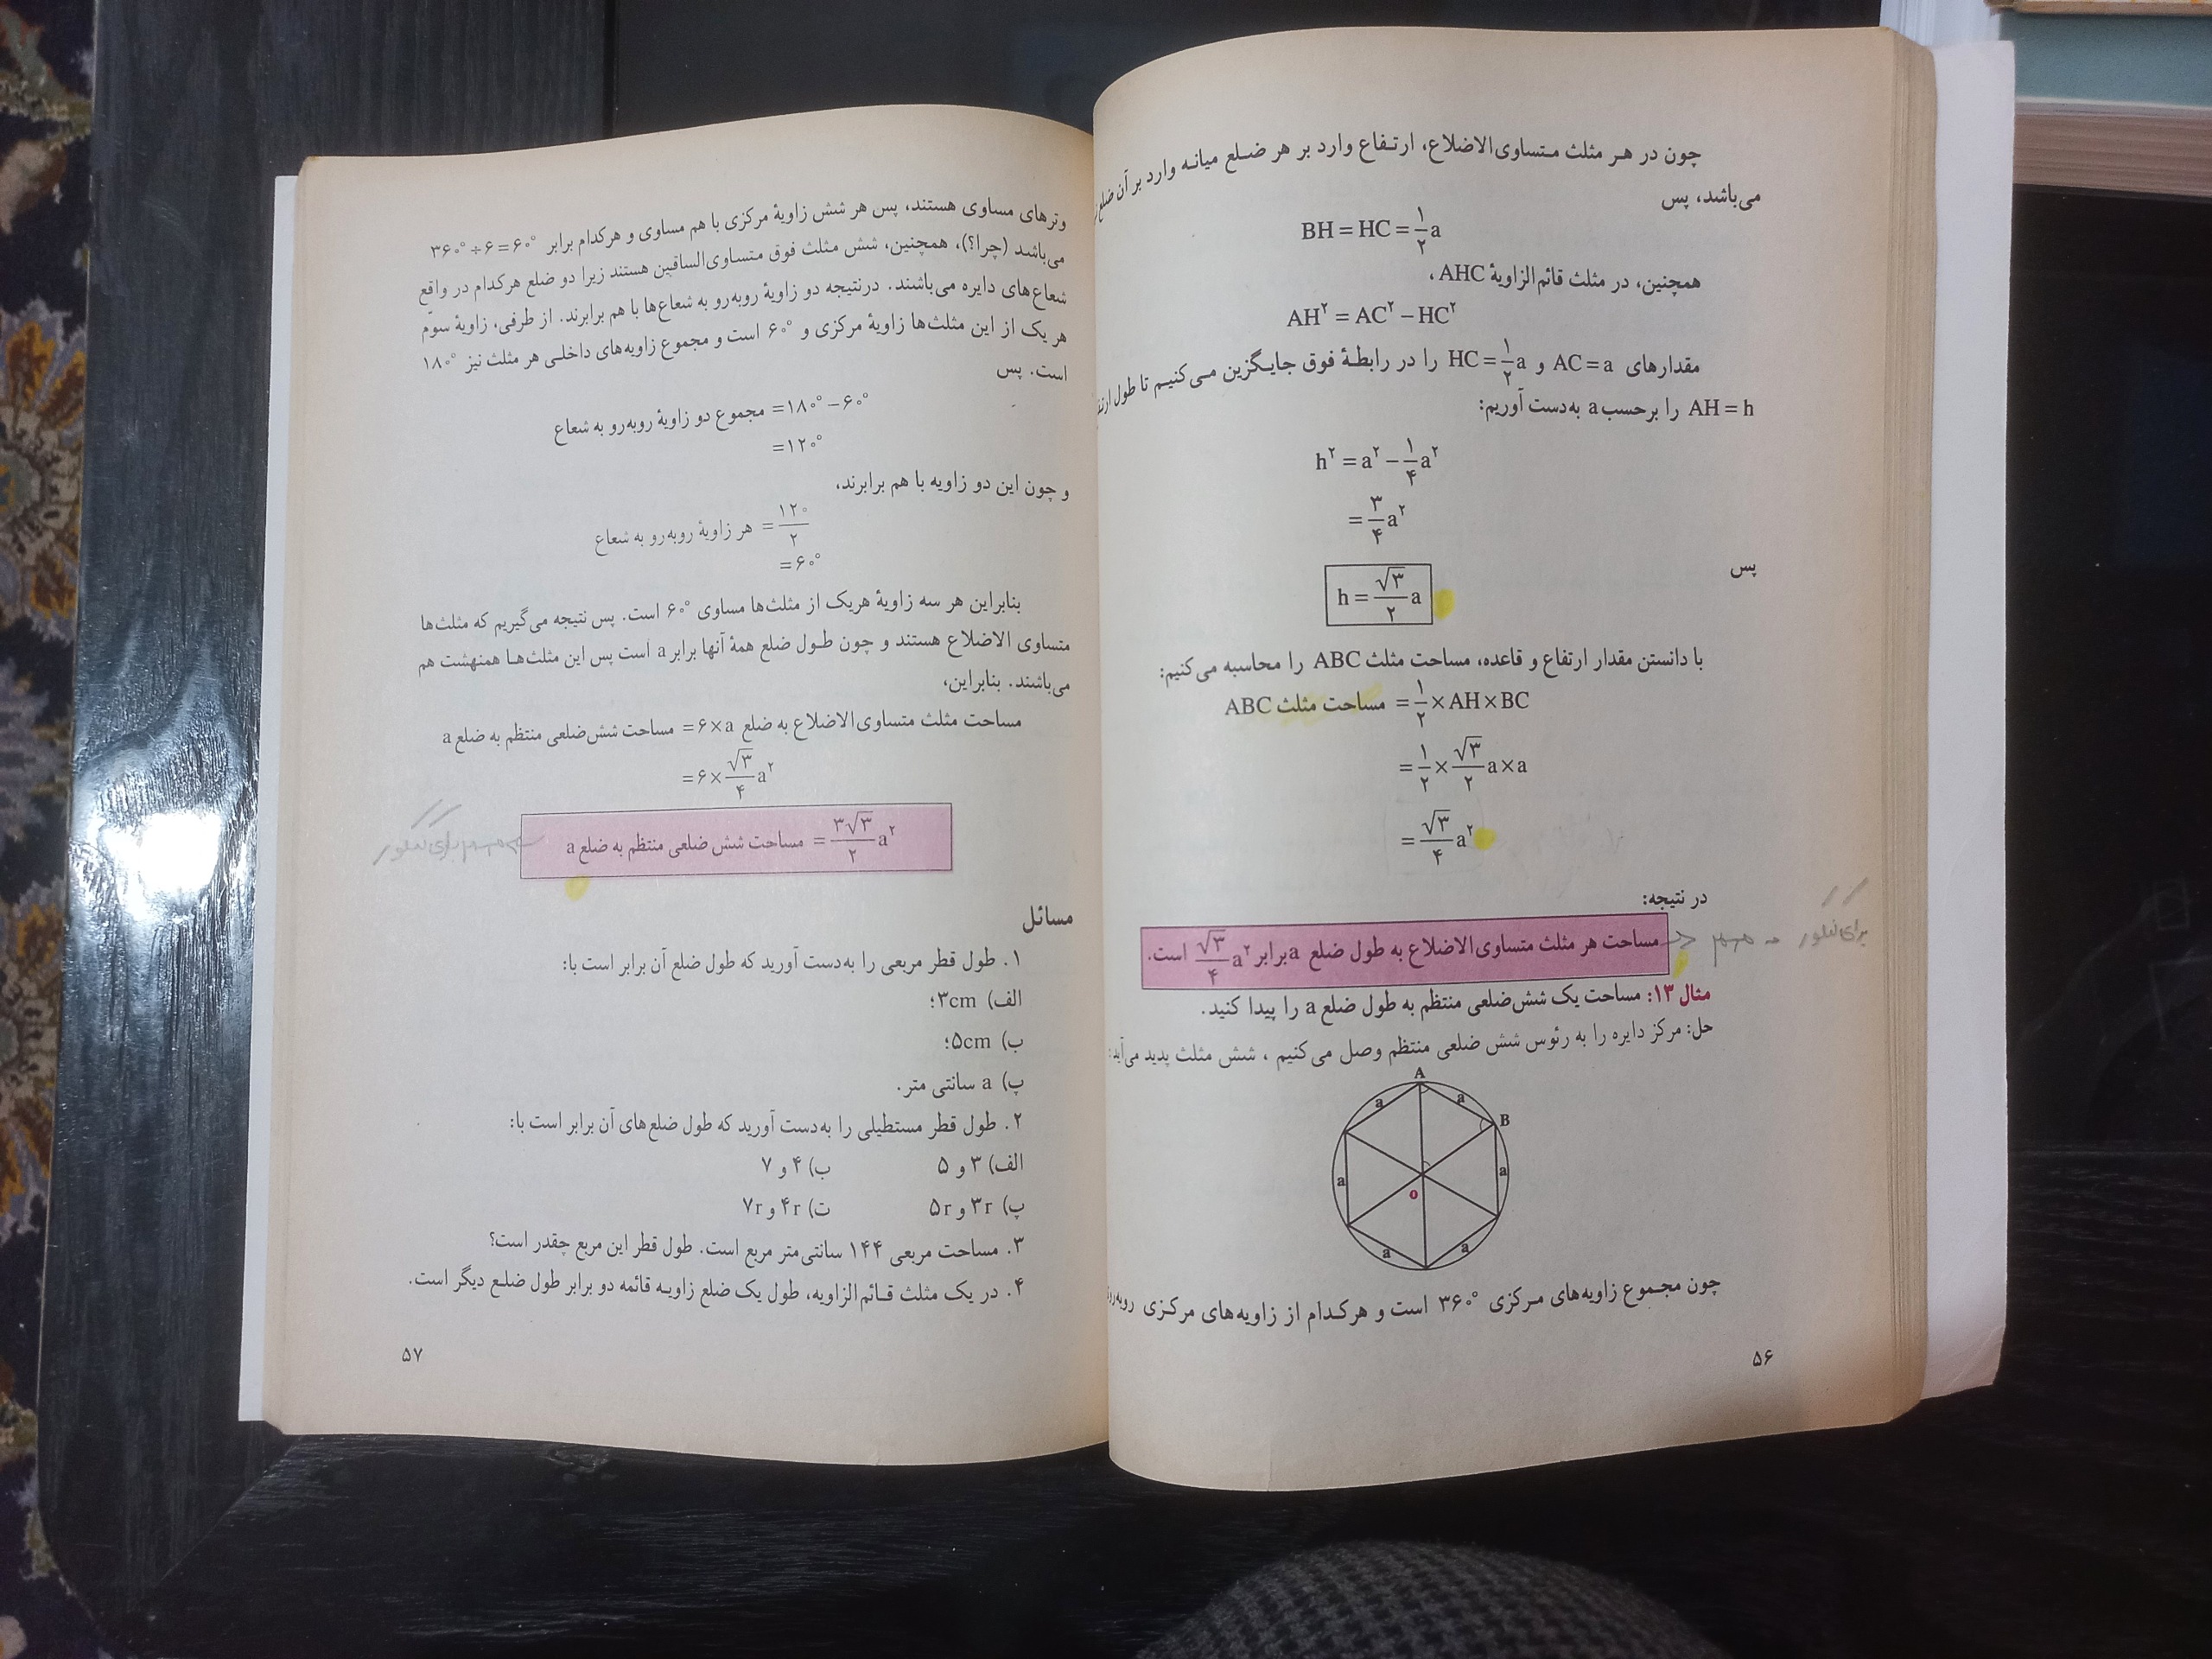 چون در هر مثلث متساوی‌الاضلاع، ارتفاع وارد بر هر ضلع میانه وارد بر آن ضلع
می‌باشد، پس
BH = HC = ۱/۲ a
همچنین، در مثلث قائم‌الزاویهٔ AHC،
AH² = AC² − HC²
مقدارهای AC = a و HC = ۱/۲ a را در رابطهٔ فوق جایگزین می‌کنیم تا طول
AH = h را برحسب a به‌دست آوریم:
h² = a² − ۱/۴ a²
= ۳/۴ a²
پس
h = √۳/۲ a
با دانستن مقدار ارتفاع و قاعده، مساحت مثلث ABC را محاسبه می‌کنیم:
مساحت مثلث ABC = ۱/۲ × AH × BC
= ۱/۲ × √۳/۲ a × a
= √۳/۴ a²
در نتیجه:
مساحت هر مثلث متساوی‌الاضلاع به طول ضلع a برابر √۳/۴ a² است.
مهم - برای
مثال ۱۳: مساحت یک شش‌ضلعی منتظم به طول ضلع a را پیدا کنید.
حل: مرکز دایره را به رئوس شش ضلعی منتظم وصل می‌کنیم ، شش مثلث پدید می‌آید:
A
a a
B
a a
o
a a
چون مجموع زاویه‌های مرکزی ۳۶۰° است و هرکدام از زاویه‌های مرکزی
۵۶
وترهای مساوی هستند، پس هر شش زاویهٔ مرکزی با هم مساوی و هرکدام برابر ۳۶۰° ÷ ۶ = ۶۰°
می‌باشد (چرا؟)، همچنین، شش مثلث فوق متساوی‌الساقین هستند زیرا دو ضلع هرکدام در واقع
شعاع‌های دایره می‌باشند. درنتیجه دو زاویهٔ روبه‌رو به شعاع‌ها با هم برابرند. از طرفی، زاویهٔ سوّم
هر یک از این مثلث‌ها زاویهٔ مرکزی و ۶۰° است و مجموع زاویه‌های داخلی هر مثلث نیز ۱۸۰°
است. پس
مجموع دو زاویهٔ روبه‌رو به شعاع = ۱۸۰° − ۶۰°
= ۱۲۰°
و چون این دو زاویه با هم برابرند،
هر زاویهٔ روبه‌رو به شعاع = ۱۲۰/۲
= ۶۰°
بنابراین هر سه زاویهٔ هریک از مثلث‌ها مساوی ۶۰° است. پس نتیجه می‌گیریم که مثلث‌ها
متساوی الاضلاع هستند و چون طول ضلع همهٔ آنها برابر a است پس این مثلث‌ها همنهشت هم
می‌باشند. بنابراین،
مساحت مثلث متساوی‌الاضلاع به ضلع a × ۶ = مساحت شش‌ضلعی منتظم به ضلع a
= ۶ × √۳/۴ a²
مساحت شش ضلعی منتظم به ضلع a = ۳√۳/۲ a²
مسائل
۱. طول قطر مربعی را به‌دست آورید که طول ضلع آن برابر است با:
الف) ۳cm؛
ب) ۵cm؛
پ) a سانتی متر.
۲. طول قطر مستطیلی را به‌دست آورید که طول ضلع‌های آن برابر است با:
الف) ۳ و ۵ ب) ۴ و ۷
پ) ۳r و ۵r ت) ۴r و ۷r
۳. مساحت مربعی ۱۴۴ سانتی‌متر مربع است. طول قطر این مربع چقدر است؟
۴. در یک مثلث قائم‌الزاویه، طول یک ضلع زاویه قائمه دو برابر طول ضلع دیگر است.
۵۷